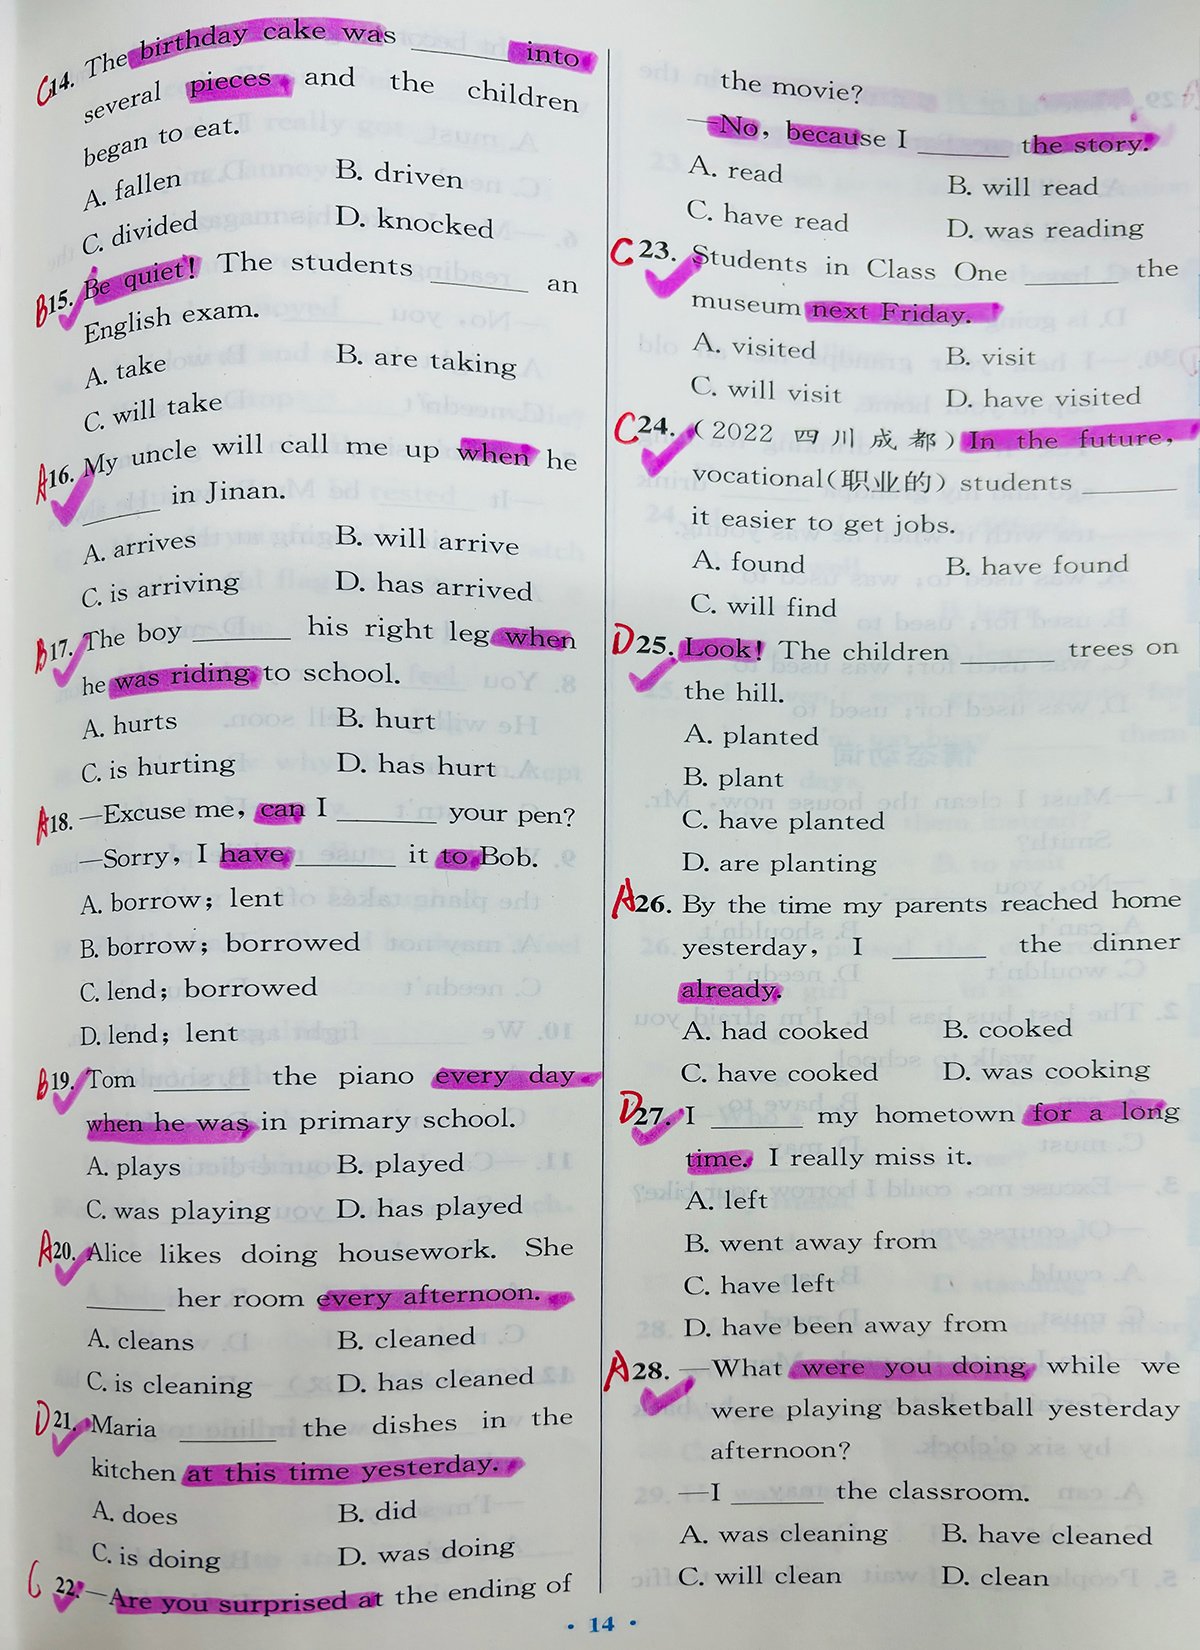 C14. The birthday cake was ______ into
several pieces and the children
began to eat.
A. fallen B. driven
C. divided D. knocked
B15. Be quiet! The students ______ an
English exam.
A. take B. are taking
C. will take
A16. My uncle will call me up when he
______ in Jinan.
A. arrives B. will arrive
C. is arriving D. has arrived
B17. The boy ______ his right leg when
he was riding to school.
A. hurts B. hurt
C. is hurting D. has hurt
A18. —Excuse me, can I ______ your pen?
—Sorry, I have ______ it to Bob.
A. borrow; lent
B. borrow; borrowed
C. lend; borrowed
D. lend; lent
B19. Tom ______ the piano every day
when he was in primary school.
A. plays B. played
C. was playing D. has played
A20. Alice likes doing housework. She
______ her room every afternoon.
A. cleans B. cleaned
C. is cleaning D. has cleaned
D21. Maria ______ the dishes in the
kitchen at this time yesterday.
A. does B. did
C. is doing D. was doing
C 22. —Are you surprised at the ending of
the movie?
—No, because I ______ the story.
A. read B. will read
C. have read D. was reading
C23. Students in Class One ______ the
museum next Friday.
A. visited B. visit
C. will visit D. have visited
C24. (2022 四川成都) In the future,
vocational(职业的) students ______
it easier to get jobs.
A. found B. have found
C. will find
D25. Look! The children ______ trees on
the hill.
A. planted
B. plant
C. have planted
D. are planting
A26. By the time my parents reached home
yesterday, I ______ the dinner
already.
A. had cooked B. cooked
C. have cooked D. was cooking
D27. I ______ my hometown for a long
time. I really miss it.
A. left
B. went away from
C. have left
D. have been away from
A28. —What were you doing while we
were playing basketball yesterday
afternoon?
—I ______ the classroom.
A. was cleaning B. have cleaned
C. will clean D. clean
· 14 ·